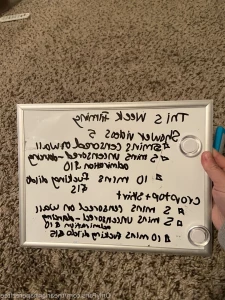 This Week Filming
Shower Videos 5
5 mins censored on wall
5 mins uncensored -during
admiration $10
10 mins fucking dildo
$15
Croptop + Skirt
5 mins censored on wall
5 mins uncensored -during
admiration $10
10 mins fucking dildo $15